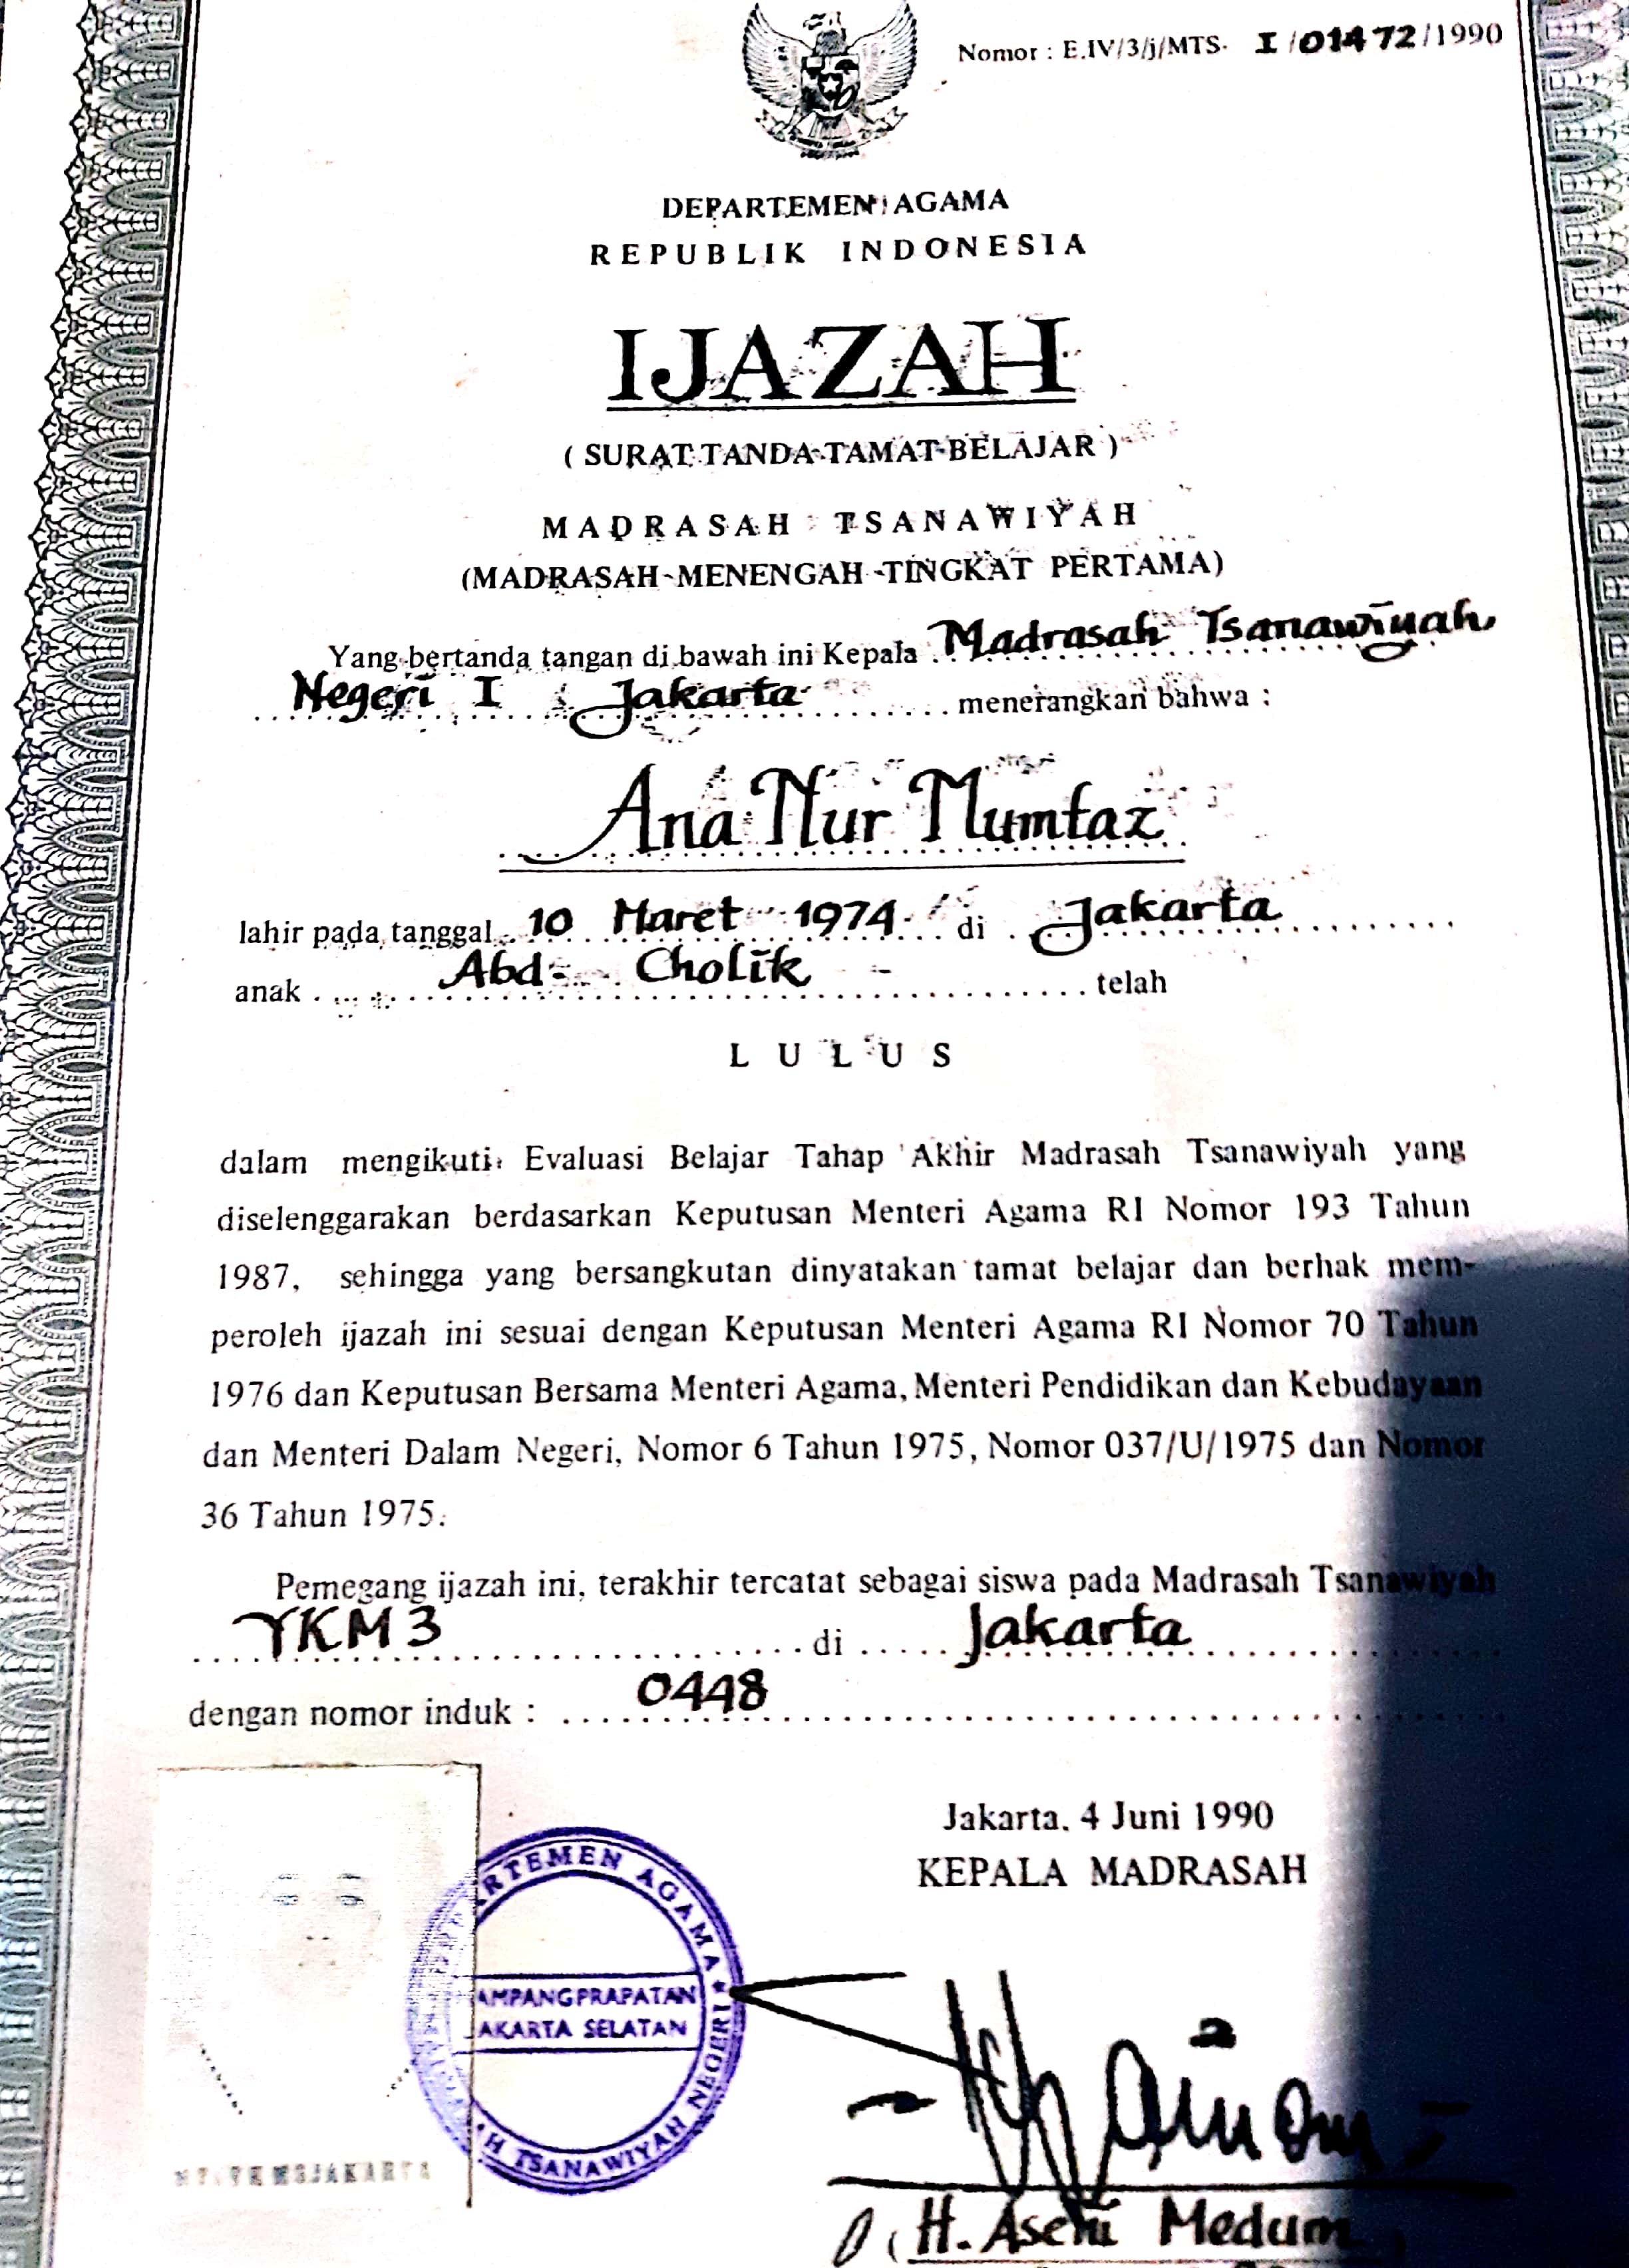 Nomor : E.IV/3/j/MTS. I/01472/1990
DEPARTEMEN AGAMA
REPUBLIK INDONESIA
IJAZAH
( SURAT TANDA TAMAT BELAJAR )
MADRASAH TSANAWIYAH
(MADRASAH MENENGAH TINGKAT PERTAMA)
Yang bertanda tangan di bawah ini Kepala Madrasah Tsanawiyah
Negeri I Jakarta menerangkan bahwa :
Ana Nur Mumtaz
lahir pada tanggal 10 Maret 1974 di Jakarta
anak Abd. Cholik telah
LULUS
dalam mengikuti Evaluasi Belajar Tahap Akhir Madrasah Tsanawiyah yang
diselenggarakan berdasarkan Keputusan Menteri Agama RI Nomor 193 Tahun
1987, sehingga yang bersangkutan dinyatakan tamat belajar dan berhak mem-
peroleh ijazah ini sesuai dengan Keputusan Menteri Agama RI Nomor 70 Tahun
1976 dan Keputusan Bersama Menteri Agama, Menteri Pendidikan dan Kebudayaan
dan Menteri Dalam Negeri, Nomor 6 Tahun 1975, Nomor 037/U/1975 dan Nomor
36 Tahun 1975.
Pemegang ijazah ini, terakhir tercatat sebagai siswa pada Madrasah Tsanawiyah
YKM 3 di Jakarta
dengan nomor induk : 0448
Jakarta, 4 Juni 1990
KEPALA MADRASAH
ARTEMEN AGAMA
AMPANGPRAPATAN
JAKARTA SELATAN
AH TSANAWIYAH NEGERI
( H. Medum